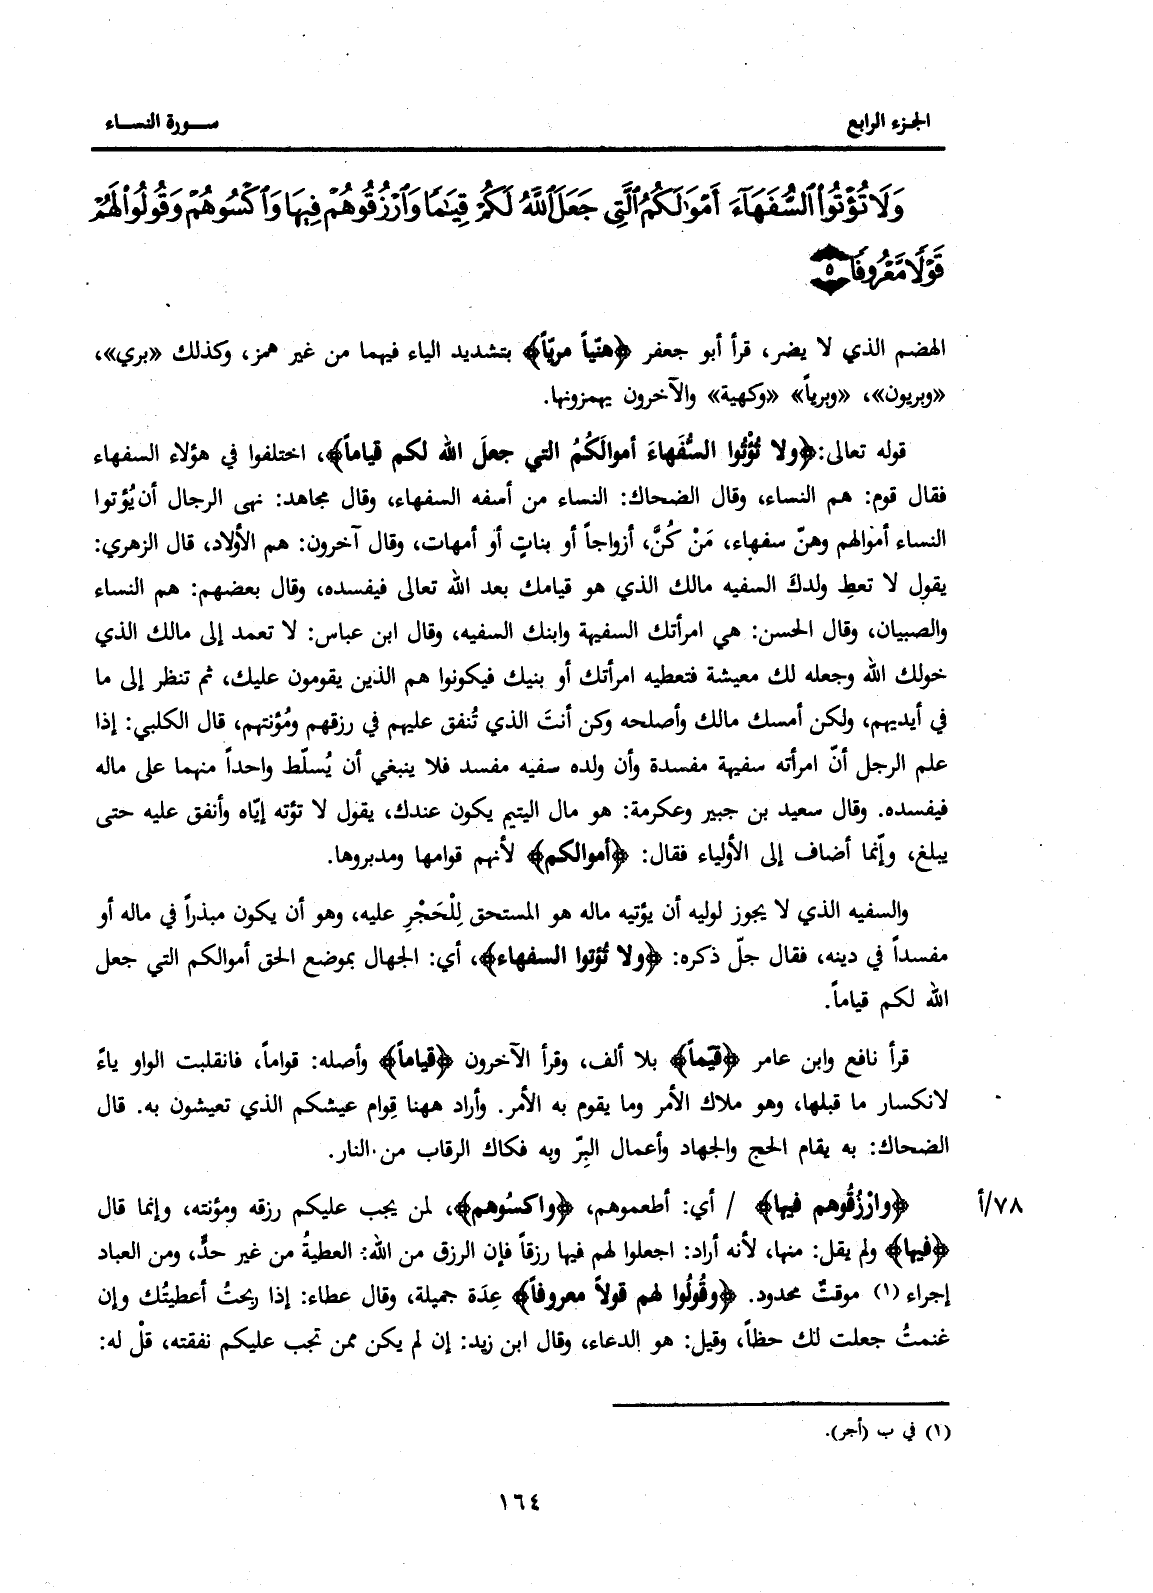 الجزء الرابع
ســورة النســاء
وَلَا تُؤْتُوا۟ ٱلسُّفَهَآءَ أَمْوَٰلَكُمُ ٱلَّتِى جَعَلَ ٱللَّهُ لَكُمْ قِيَٰمًا وَٱرْزُقُوهُمْ فِيهَا وَٱكْسُوهُمْ وَقُولُوا۟ لَهُمْ
قَوْلًا مَّعْرُوفًا ٥
الهضم الذي لا يضر، قرأ أبو جعفر ﴿هنّياً مريّاً﴾ بتشديد الياء فيهما من غير همز، وكذلك «بري»،
«وبريون»، «وبرياً» «وكهية» والآخرون يهمزونها.
قوله تعالى: ﴿ولا تُؤْتُوا السُّفَهَاءَ أموالَكُمُ التي جعلَ الله لكم قياماً﴾، اختلفوا في هؤلاء السفهاء
فقال قوم: هم النساء، وقال الضحاك: النساء من أسفه السفهاء، وقال مجاهد: نهى الرجال أن يُؤتوا
النساء أموالهم وهنّ سفهاء، مَنْ كُنَّ، أزواجاً أو بناتٍ أو أمهات، وقال آخرون: هم الأولاد، قال الزهري:
يقول لا تعطِ ولدكَ السفيه مالك الذي هو قيامك بعد الله تعالى فيفسده، وقال بعضهم: هم النساء
والصبيان، وقال الحسن: هي امرأتك السفيهة وابنك السفيه، وقال ابن عباس: لا تعمد إلى مالك الذي
خولك الله وجعله لك معيشة فتعطيه امرأتك أو بنيك فيكونوا هم الذين يقومون عليك، ثم تنظر إلى ما
في أيديهم، ولكن أمسك مالك وأصلحه وكن أنتَ الذي تُنفق عليهم في رزقهم ومُؤنتهم، قال الكلبي: إذا
علم الرجل أنّ امرأته سفيهة مفسدة وأن ولده سفيه مفسد فلا ينبغي أن يُسلّط واحداً منهما على ماله
فيفسده. وقال سعيد بن جبير وعكرمة: هو مال اليتيم يكون عندك، يقول لا تؤته إيّاه وأنفق عليه حتى
يبلغ، وإنّما أضاف إلى الأولياء فقال: ﴿أموالكم﴾ لأنهم قوامها ومدبروها.
والسفيه الذي لا يجوز لوليه أن يؤتيه ماله هو المستحق لِلْحَجْرِ عليه، وهو أن يكون مبذراً في ماله أو
مفسداً في دينه، فقال جلّ ذكره: ﴿ولا تُؤتوا السفهاء﴾، أي: الجهال بموضع الحق أموالكم التي جعل
الله لكم قياماً.
قرأ نافع وابن عامر ﴿قيّماً﴾ بلا ألف، وقرأ الآخرون ﴿قياماً﴾ وأصله: قواماً، فانقلبت الواو ياءً
لانكسار ما قبلها، وهو ملاك الأمر وما يقوم به الأمر. وأراد ههنا قِوام عيشكم الذي تعيشون به. قال
الضحاك: به يقام الحج والجهاد وأعمال البِرّ وبه فكاك الرقاب من النار.
٧٨/أ ﴿وارْزُقُوهم فيها﴾ / أي: أطعموهم، ﴿واكسُوهم﴾، لمن يجب عليكم رزقه ومؤنته، وإنما قال
﴿فيها﴾ ولم يقل: منها، لأنه أراد: اجعلوا لهم فيها رزقاً فإن الرزق من الله: العطيةُ من غير حدٍّ، ومن العباد
إجراء (١) موقتٌ محدود. ﴿وقُولُوا لهم قولاً معروفاً﴾ عِدَة جميلة، وقال عطاء: إذا ربحتُ أعطيتُك وإن
غنمتُ جعلت لك حظاً، وقيل: هو الدعاء، وقال ابن زيد: إن لم يكن ممن تجب عليكم نفقته، قلْ له:
(١) في ب (أجر).
١٦٤